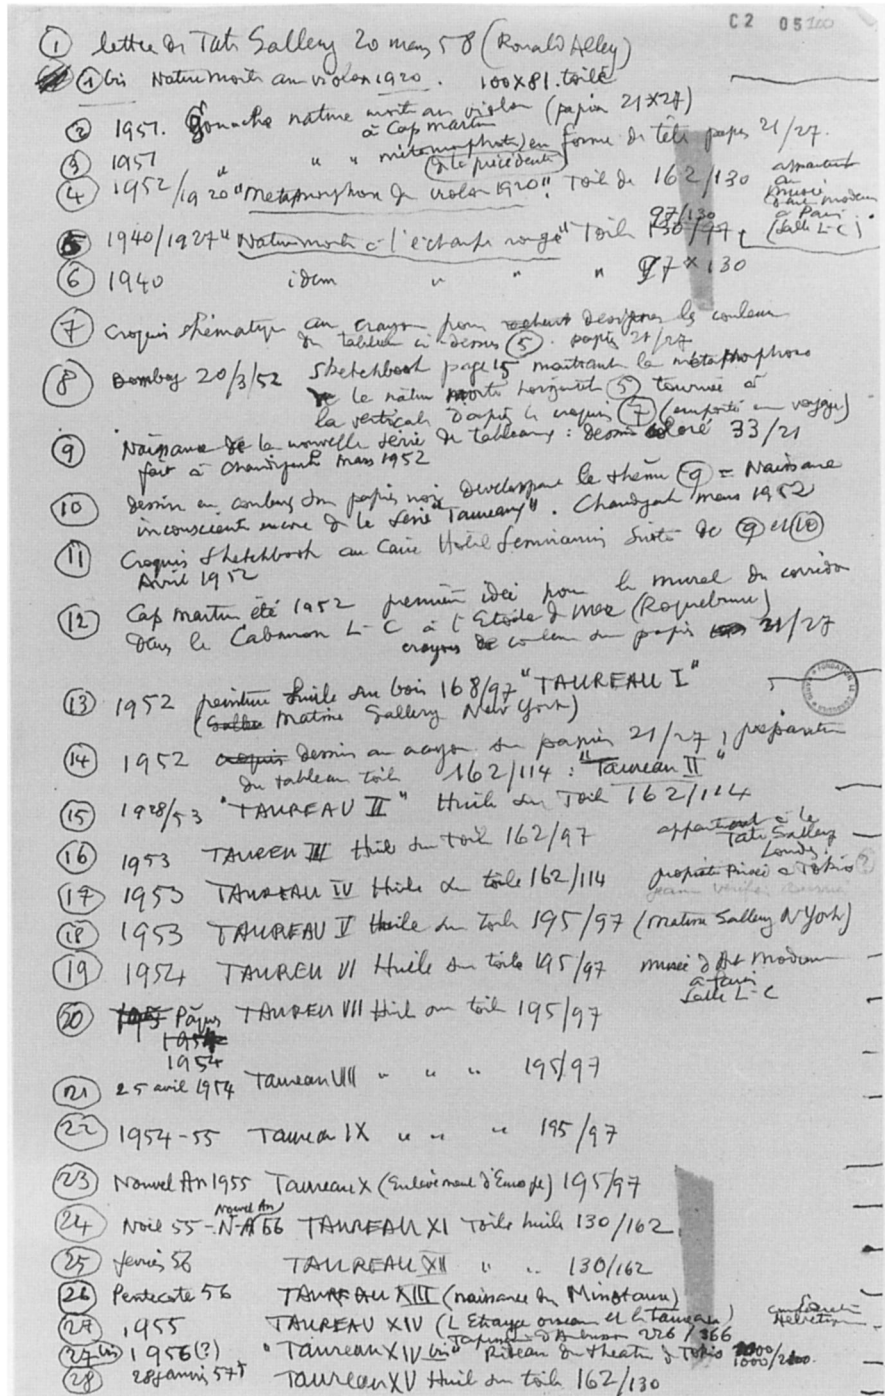 C2 05 100
① lettre de Tate Gallery 20 mars 58 (Ronald Alley)
① bis Nature morte au violon 1920. 100X81. toile
② 1951. Gouache nature morte au violon (papier 21X27)
à Cap Martin
③ 1951 " " " (métamorphose) en forme de tête papier 21/27.
de la précédente
④ 1952/1920 "Métamorphose du violon 1920". Toile de 162/130 appartient
au
musée
d'art moderne
à Paris
(Salle L-C)
97/130
⑤ 1940/1927 "Nature morte à l'écharpe rouge" Toile 130/97.
⑥ 1940 idem " " " 97 X 130
⑦ Croquis au crayon pour designer les couleurs
du tableau ci-dessus ⑤. papier 21/27
⑧ Bombay 20/3/52 Sketchbook page 15 montrant la métamorphose
de la nature morte horizontale ⑤ tournée à
la verticale d'après le croquis ⑦ (emporté en voyage)
⑨ Naissance de la nouvelle série de tableaux : dessin coloré 33/21
fait à Chandigarh mars 1952
⑩ dessin en couleurs sur papier noir développant le thème ⑨ = Naissance
inconsciente encore de la série "Taureaux". Chandigarh mars 1952
⑪ Croquis Sketchbook au Caire Hotel Semiramis Suite de ⑨ et ⑩
Avril 1952
⑫ Cap Martin été 1952 première idée pour le mural du corridor
dans le Cabanon L-C à l'Etoile de Mer (Roquebrune)
crayons de couleur sur papier 21/27
⑬ 1952 peinture huile sur bois 168/97 "TAUREAU I"
(Matisse Gallery New York)
⑭ 1952 croquis dessin au crayon sur papier 21/27, préparation
du tableau toile 162/114 : "Taureau II"
⑮ 1928/53 "TAUREAU II" Huile sur Toile 162/114
⑯ 1953 TAUREU III Huile sur toile 162/97 appartenant à la
Tate Gallery
Londres
⑰ 1953 TAUREAU IV Huile sur toile 162/114 propriété privée à Tokio ?
⑱ 1953 TAUREAU V Huile sur toile 195/97 (Matisse Gallery N York)
⑲ 1954 TAUREU VI Huile sur toile 195/97 musée d'Art Moderne
à Paris
Salle L-C
⑳ 1953 Pâques TAUREU VII Huile sur toile 195/97
1954
1954
㉑ 25 avril 1954 Taureau VIII " " " 195/97
㉒ 1954-55 Taureau IX " " " 195/97
㉓ Nouvel An 1955 Taureau X (Enlèvement d'Europe) 195/97
Nouvel An
㉔ Noël 55 - N-A 56 TAUREAU XI Toile huile 130/162
㉕ février 56 TAUREAU XII " " 130/162
㉖ Pentecote 56 TAUREAU XIII (naissance du Minotaure)
㉗ 1955 TAUREAU XIV (L'Etrange oiseau et le taureau)
Tapisserie d'Aubusson 226/366
㉗ bis 1956(?) "Taureau XIV bis" Rideau du theatre de Tokio 1000/2100.
㉘ 28 janvier 57 Taureau XV Huile sur toile 162/130